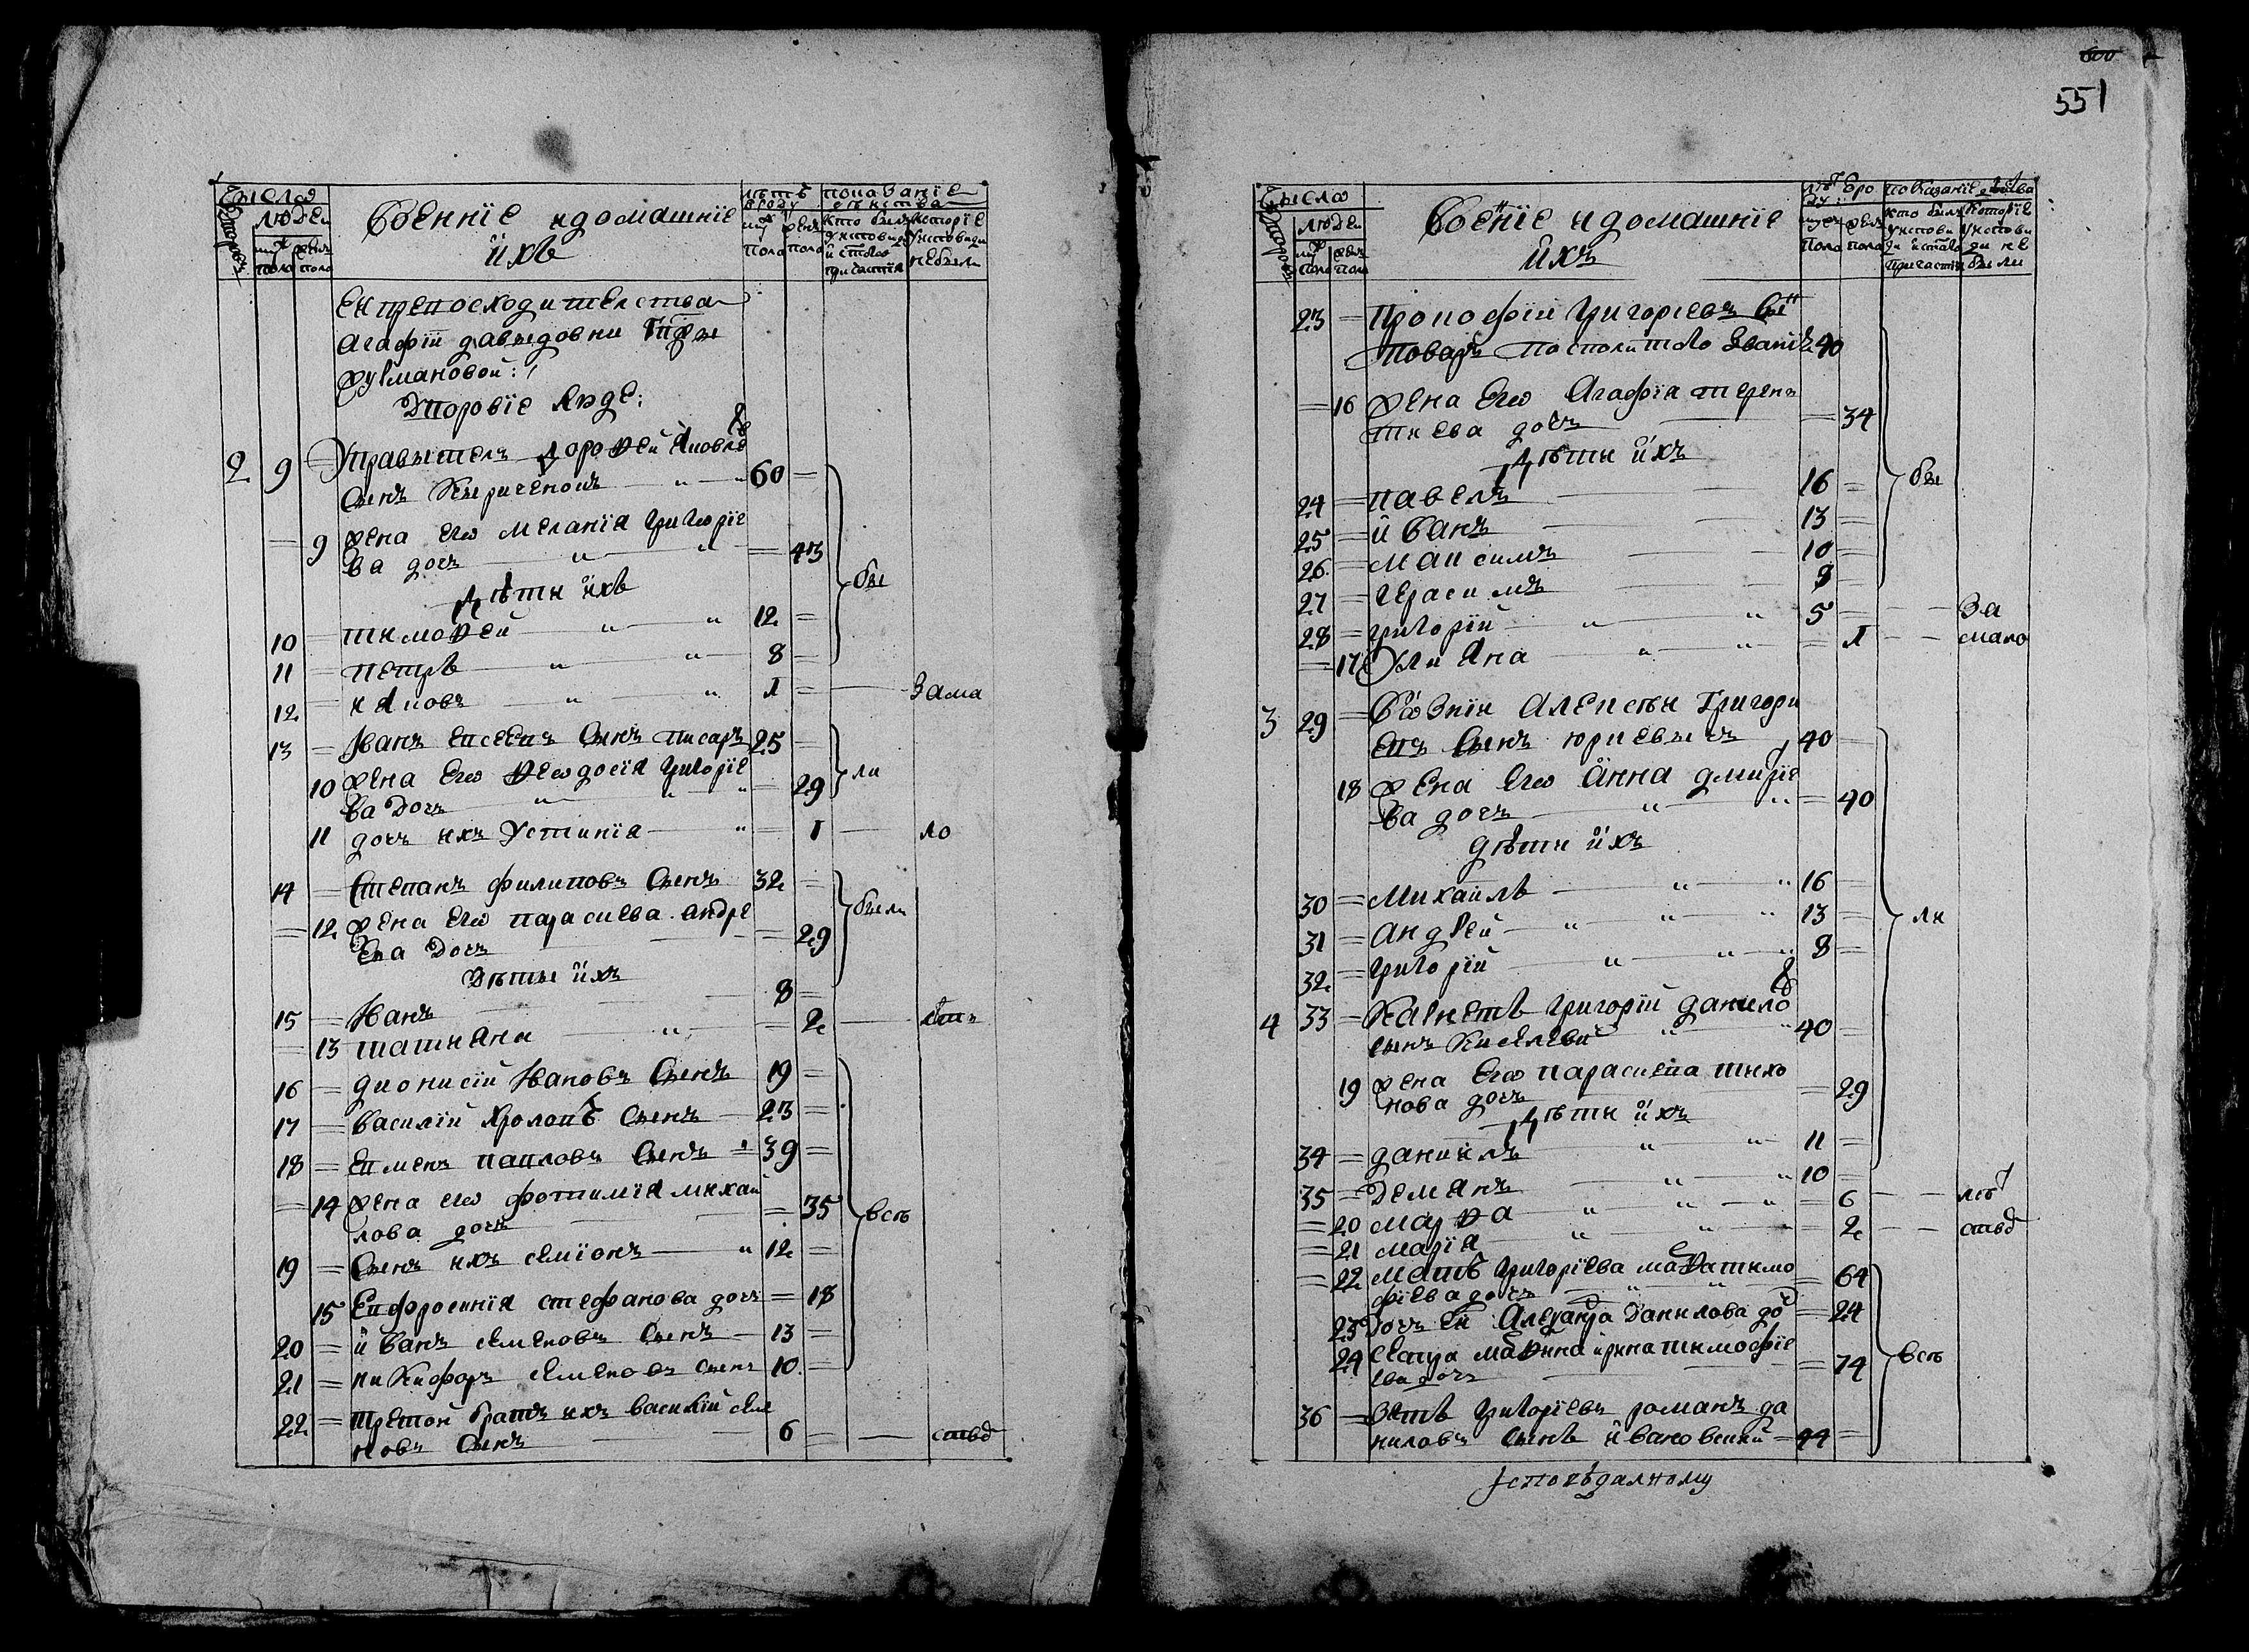 Число
Дворовъ
людеи
муж пола
женъ пола
Военніе и домашніе ихъ
лѣтъ в роду
муж пола
женъ пола
показаніе
кто былъ у исповѣди и с̃таго причастія
которіе у исповѣди не были
Ея превосходителства
Агафіи Давыдовни
Дворовіе люде:
2 9 = Управытель Дорофей Яковлев
сынъ Кириченокъ 60 =
= 9 жена его Меланія Григоріе
ва дочъ = 43
Дѣти ихъ бы
10 = Тимофей 12 =
11 = Петръ 8 =
12 = и Яковъ 1 = за ма
13 = Іванъ Евсеевъ сынъ писаръ 25 =
10 жена его Феодосія Григоріе
ва дочъ = 29 ли
11 дочъ ихъ Устинія = 1 ло
14 = Степанъ Филиповъ сынъ 32 =
= 12 жена его Параскева Андре
ева дочъ = 29 были
Дѣты ихъ
15 = Іванъ 8 =
= 13 Татияна = 2
16 = Дионисій Івановъ сынъ 19 =
17 = Василій Фроловъ сынъ 23 =
18 = Евменъ Павловъ сынъ 39 =
= 14 жена его Фотимія Михай
лова дочъ = 35 всѣ
19 = Сынъ ихъ Семіонъ 12 =
15 Евфросинія Стефанова дочъ = 18
20 = Иванъ Семеновъ сынъ 13 =
21 = Никифоръ Семеновъ сынъ 10 =
22 = Третой братъ ихъ Василій Семе
новъ сынъ 6 = ствомъ
600
551
Число
Дворовъ
людеи
муж пола
женъ пола
Военніе и домашніе ихъ
лѣт в роду
муж пола
женъ пола
показаніе
кто былъ у исповѣди и с̃таго причастія
которіе у исповѣди не были
23 = Прокофій Григоріевъ
товаръ посполитого званія 40
= 16 жена его Агафія Терен
тиева дочъ = 34
Дѣти ихъ
24 = Павелъ 16 = бы
25 = Иванъ 13 =
26 = Максимъ 10 =
27 = Герасимъ 9 =
28 = Григорій 5 = за
= 17 Улияна = 1 мало
3 29 = Возній Алексѣй Григори
евъ сынъ Юриевычъ 40 =
18 жена его Анна Дмитріе
ва дочъ = 40
Дѣти ихъ
30 = Михаилъ 16 =
31 = Андрей 13 = ли
32 = Григорій 8 =
4 33 = Григорій Данилов
сынъ Киселевич 40 =
19 жена его Параскева Тихо
нова дочъ = 29
Дѣти ихъ
34 = Даниилъ 11 =
35 = Демянъ 10 =
= 20 Марфа = 6 лѣт
= 21 Марія = 2 ствомъ
= 22 Мать Григоріева Тимо
фіева дочъ = 64
23 дочъ ея Данилова доч = 24
24 Ирина Тимофіе
ева дочъ = 74 всѣ
36 = Зять Григоріевъ Романъ Да
ниловъ сынъ Ивановский 44 =
Исповѣдалному